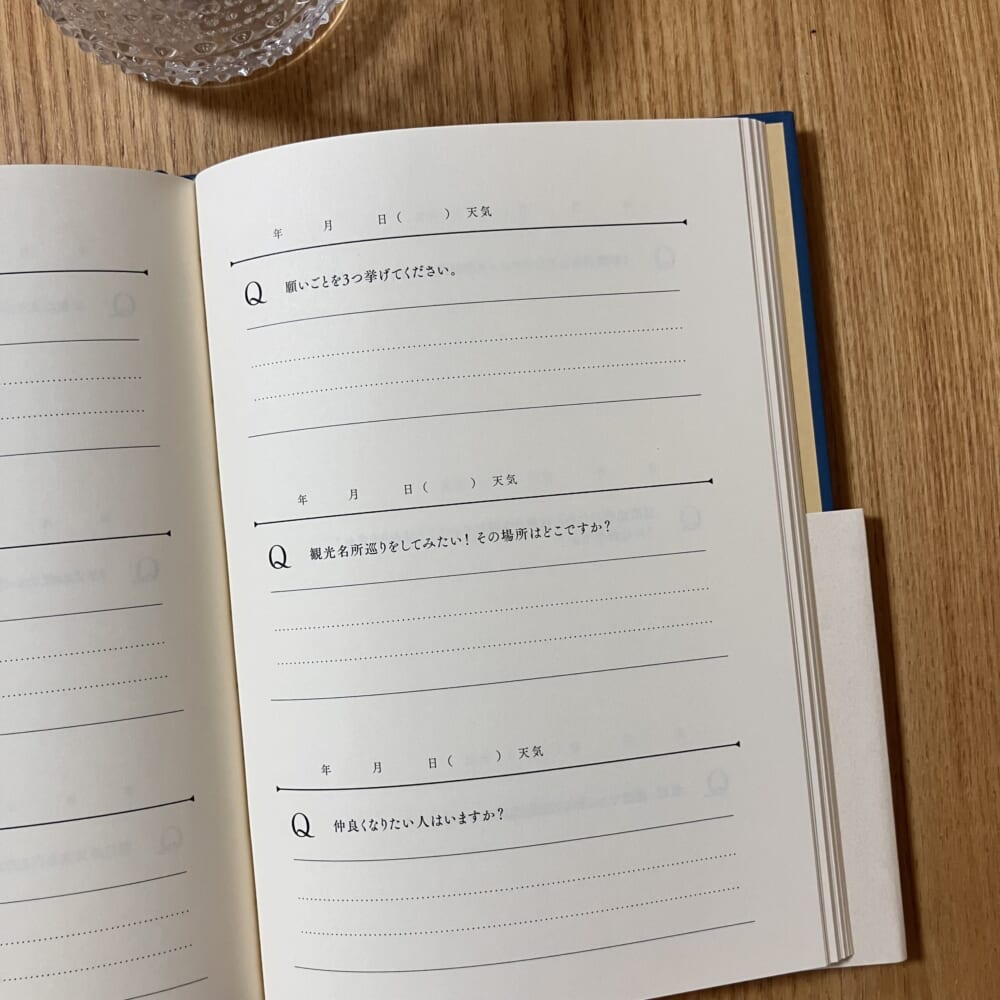 年 月 日( ) 天気
Q 願いごとを3つ挙げてください。
年 月 日( ) 天気
Q 観光名所巡りをしてみたい! その場所はどこですか?
年 月 日( ) 天気
Q 仲良くなりたい人はいますか?